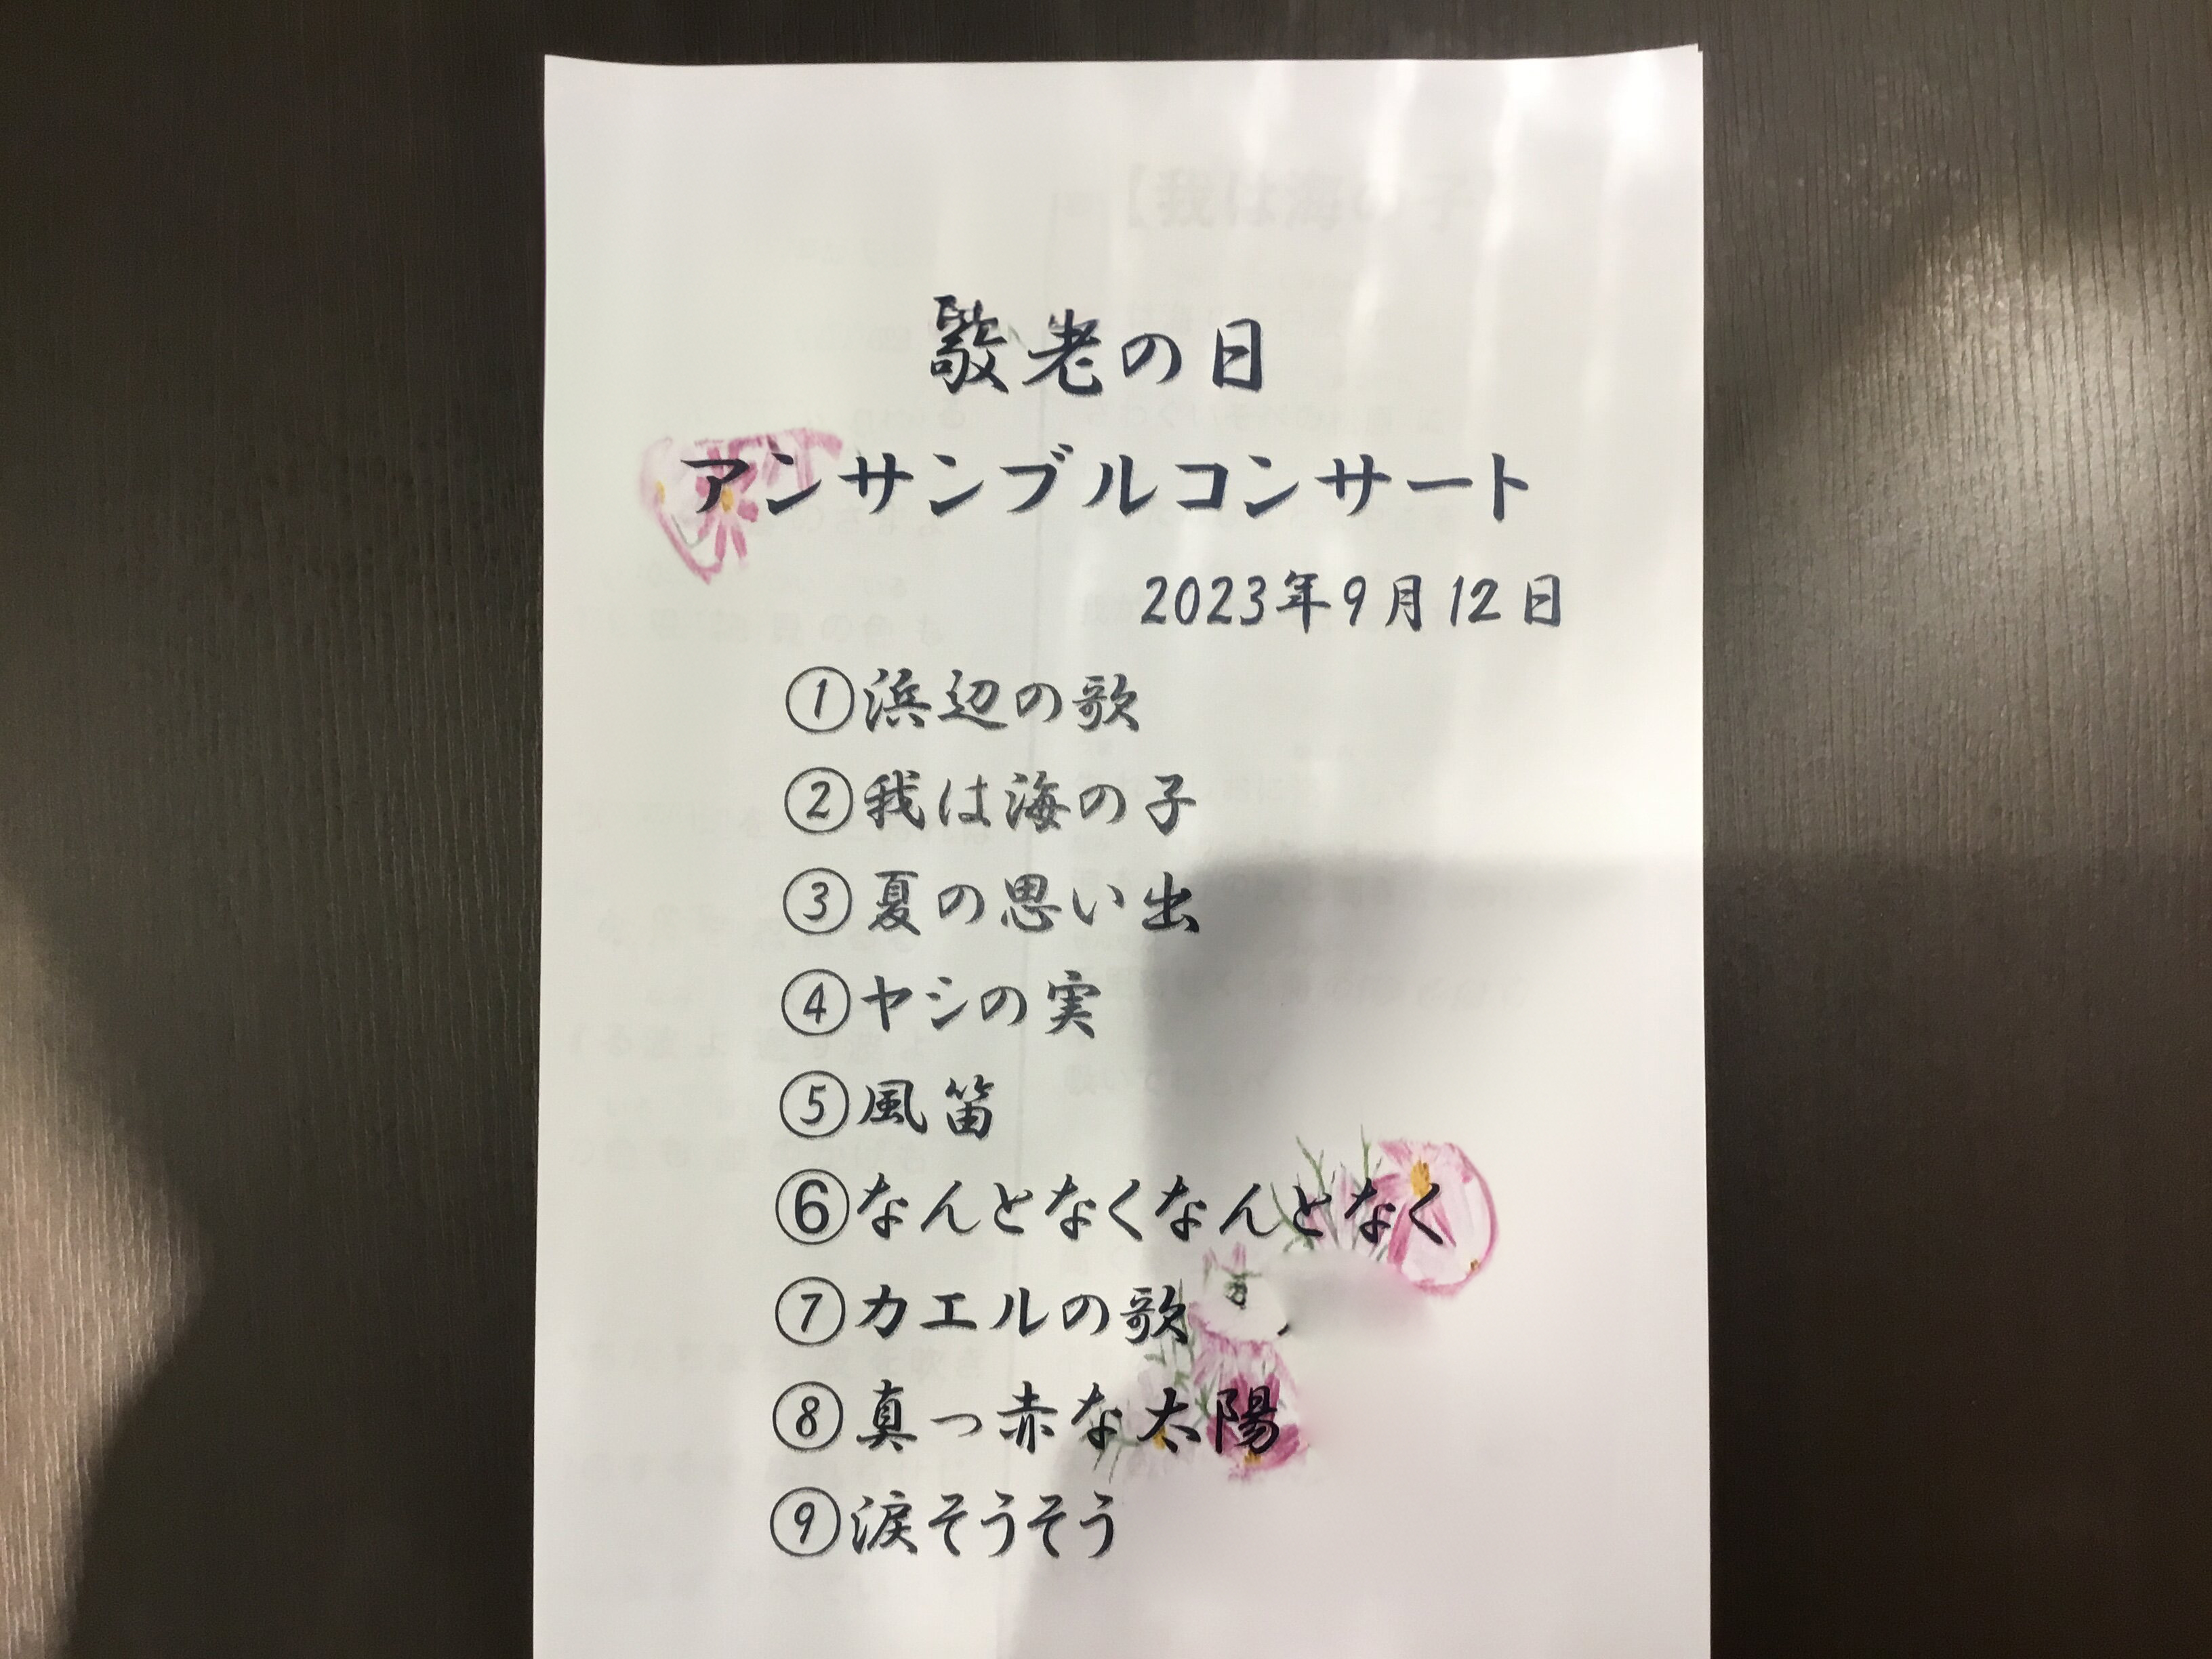 敬老の日
アンサンブルコンサート
2023年9月12日
①浜辺の歌
②我は海の子
③夏の思い出
④ヤシの実
⑤風笛
⑥なんとなくなんとなく
⑦カエルの歌
⑧真っ赤な太陽
⑨涙そうそう